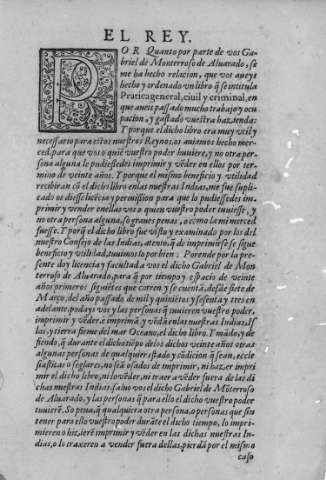 EL REY.
POR Quanto por parte de vos Ga-
briel de Monterroso de Aluarado, se
me ha hecho relacion, que vos aueys
hecho y ordenado vn libro q̃ se intitula
Pratica general, ciuil y criminal, en
que aueis passado mucho trabajo y ocu
pacion, y gastado vuestra hazienda:
Y porque el dicho libro era muy vtil y
necessario para estos nuestros Reynos, os auiamos hecho mer-
ced, para que vos o quiẽ vuestro poder huuiere, y no otra per-
sona alguna le pudiessedes imprimir y vẽder en ellos por ter-
mino de veinte años. Y porque el mismo beneficio y vtilidad
recibirian cõ el dicho libro en las nuestras Indias, me fue supli
cado os diesse licẽcia y permission para que lo pudiessedes im-
primir y vender en ellas vos o quien vuestro poder tuuiesse, y
no otra persona alguna, so graues penas, o como la mi merced
fuesse. Y porq̃ el dicho libro fue visto y examinado por los del
nuestro Consejo de las Indias, atento, q̃ de imprimirse se sigue
beneficio y vtilidad, tuuimos lo por bien: Porende por la pre-
sente doy licencia y facultad a vos el dicho Gabriel de Mon-
terroso de Aluarado, para q̃ por tiempo y espacio de veinte
años primeros siguiẽtes que corren y se cuentã, desde siete de
Março, del año passado de mil y quiniẽtos y sesenta y tres en
adelante podays vos y las personas q̃ tuuieren vuestro poder,
imprimir y vẽder, e imprimã, y vẽdã en las nuestras Indias, Is
las, y tierra firme del mar Oceano, el dicho libro. Y mãdo, y de
fiendo, q̃ durante el dicho tiẽpo de los dichos veinte años otras
algunas personas de qualquier estado y cõdicion q̃ sean, eccle
siasticas o seglares, no seã osados de imprimir, ni hazer impri
mir el dicho libro, ni lo vẽder, ni traer a vẽder fuera de las di
chas nuestras Indias, saluo vos el dicho Gabriel de Mõterroso
de Aluarado, y las personas q̃ para ello el dicho vuestro poder
tuuierẽ. So pena, q̃ qualquiera otra persona, o personas que sin
tener para ello vuestro poder durãte el dicho tiempo, lo impri-
mieren o hizierẽ imprimir y vẽder en las dichas nuestras In-
dias, o lo traxeren a vender fuera dellas, pierdã por el mismo
caso